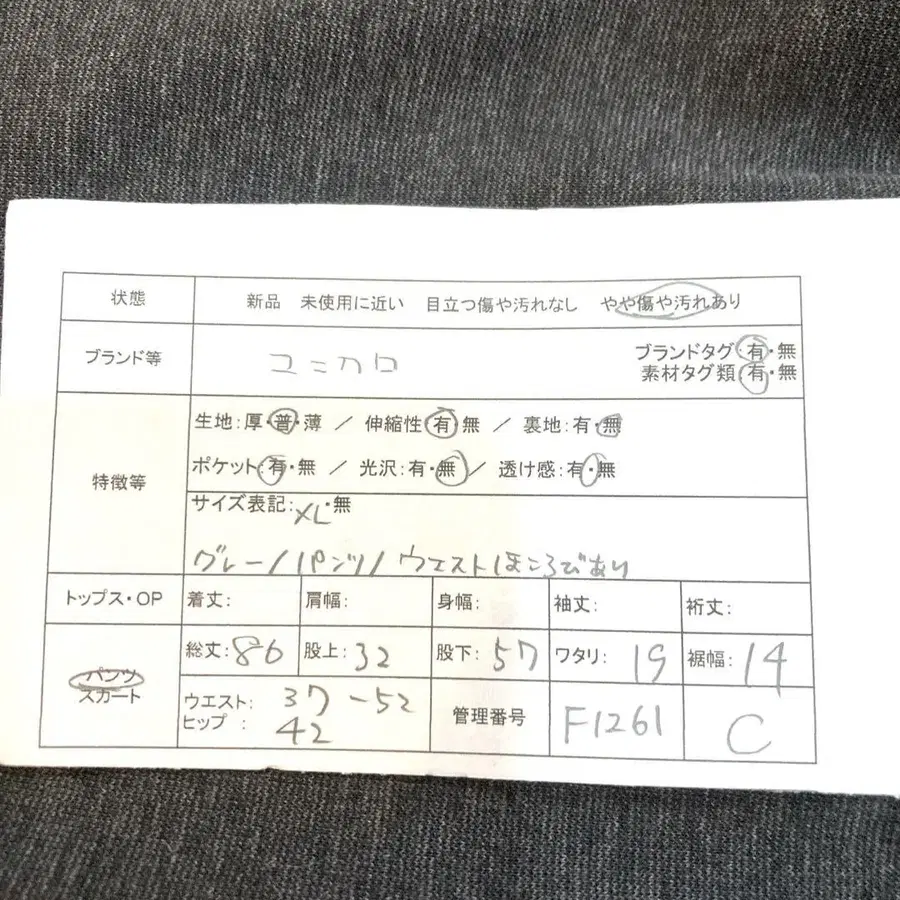 状態 新品 未使用に近い 目立つ傷や汚れなし やや傷や汚れあり
ブランド等 ユニクロ ブランドタグ:有・無
素材タグ類:有・無
特徴等 生地:厚・普・薄 / 伸縮性:有・無 / 裏地:有・無
ポケット:有・無 / 光沢:有・無 / 透け感:有・無
サイズ表記:XL・無
グレー/パンツ/ウエストほころびあり
トップス・OP 着丈: 肩幅: 身幅: 袖丈: 裄丈:
パンツ
スカート
総丈:86 股上:32 股下:57 ワタリ:19 裾幅:14
ウエスト: 37-52
ヒップ : 42
管理番号 F1261 C